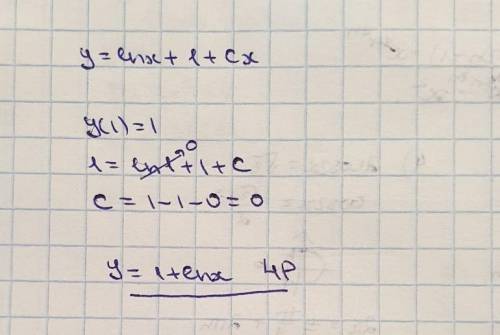 y = lnx + 1 + Cx
y(1) = 1
0
1 = ln1 + 1 + C
C = 1 - 1 - 0 = 0
y = 1 + lnx ЧР